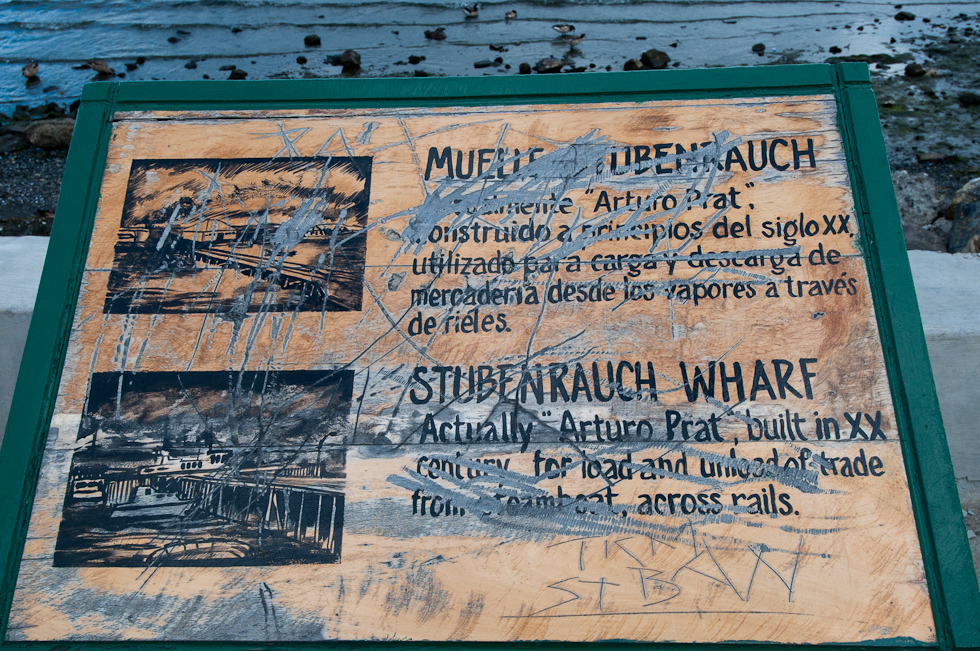 MUELLE STUBENRAUCH
"Arturo Prat",
construido a principios del siglo XX,
utilizado para carga y descarga de
mercadería desde los vapores a través
de rieles.
STUBENRAUCH WHARF
Actually "Arturo Prat", built in XX
century, for load and unload of trade
from steamboat, across rails.